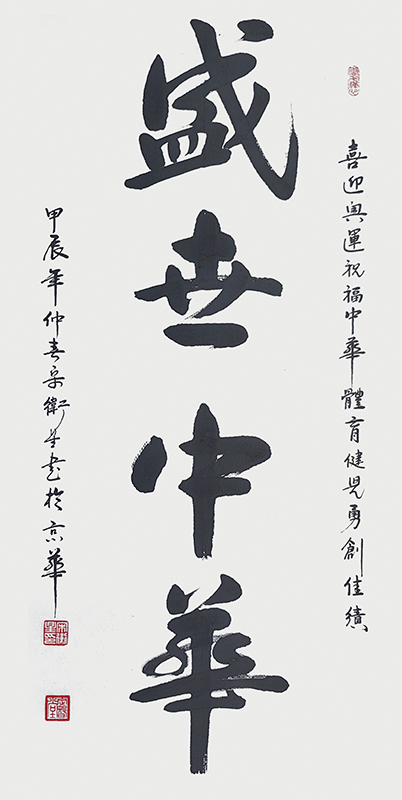 喜迎奥運祝福中華體育健児勇創佳績
盛世中華
甲辰年仲春宋衛生書於京華